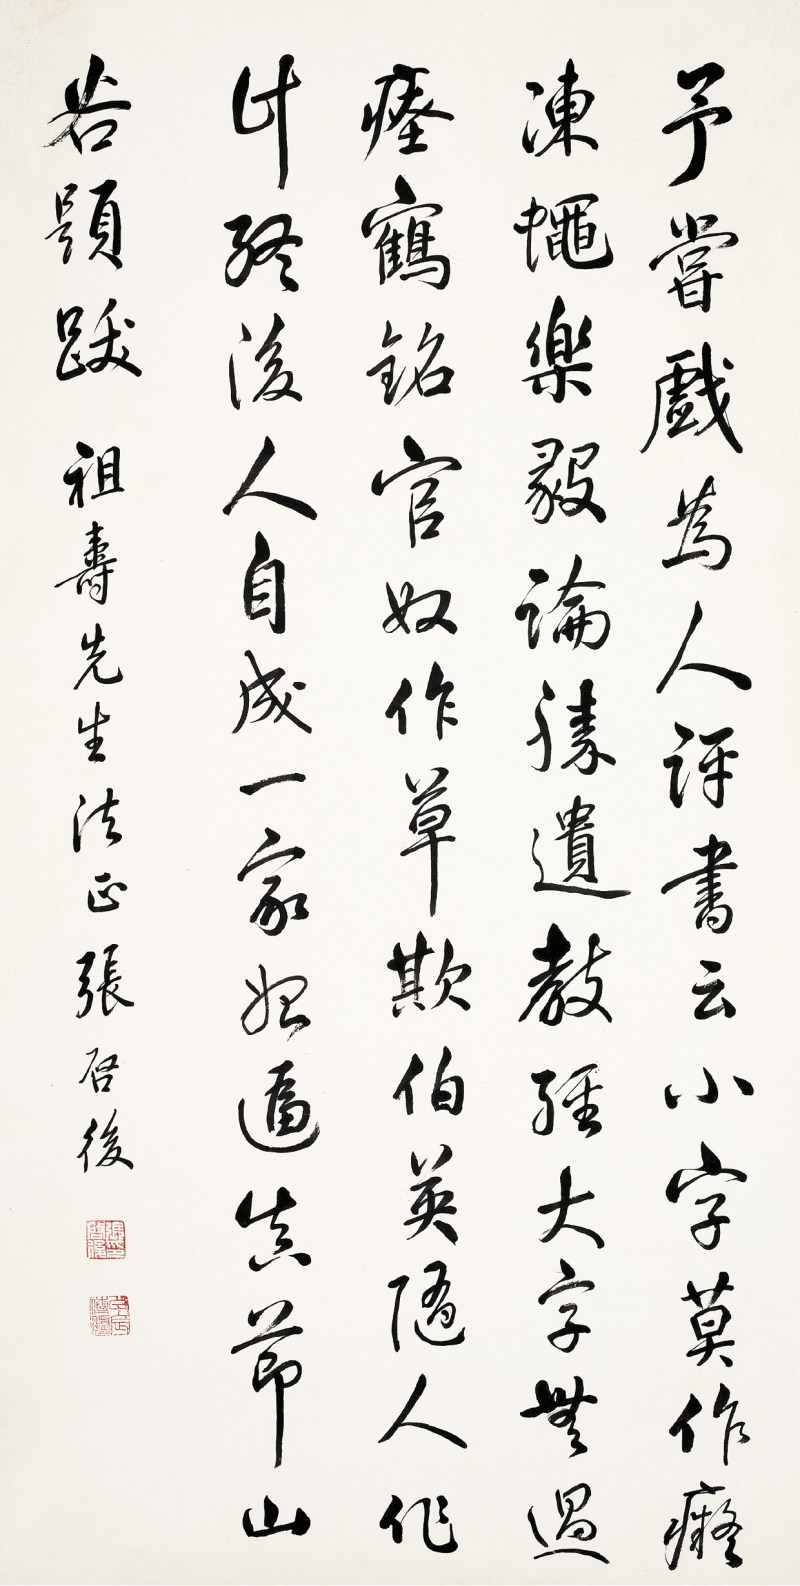 予嘗戲為人評書云小字莫作癡
凍蠅樂毅論勝遺教經大字無過
瘞鶴銘官奴作草欺伯英隨人作
計終後人自成一家始逼真節山
谷題跋 祖壽先生法正張啓後